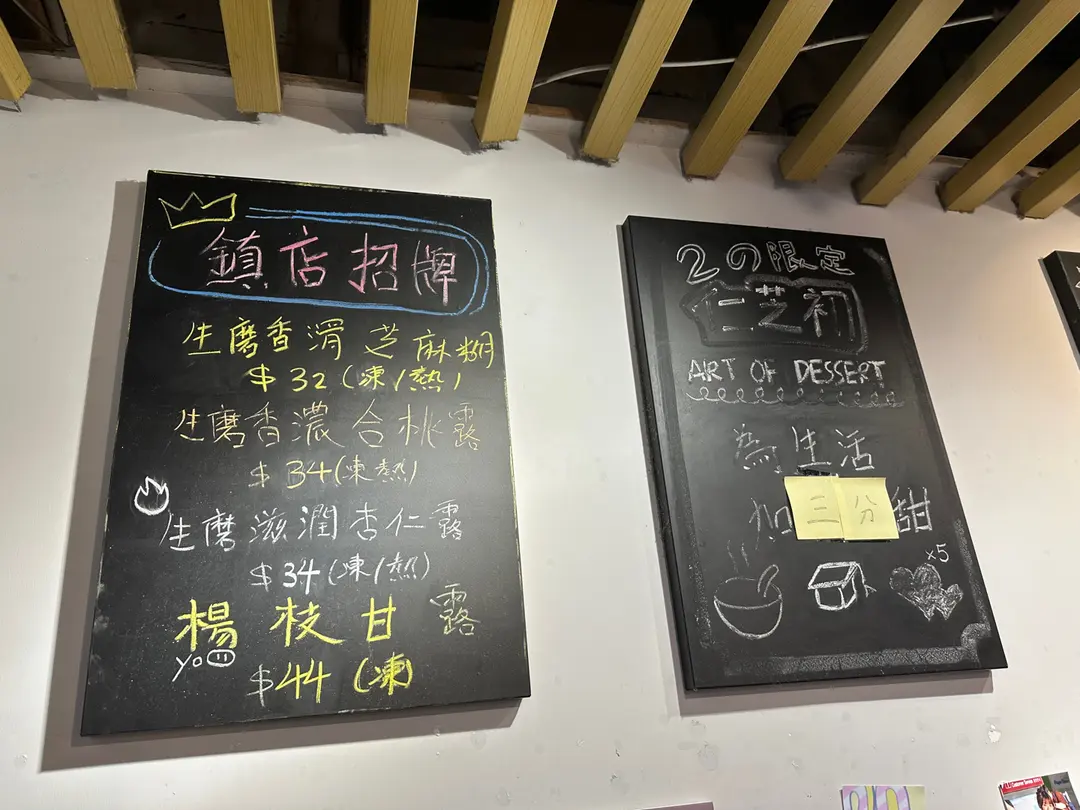 鎮店招牌
生磨香滑芝麻糊
$32(凍/熱)
生磨香濃合桃露
$34(凍熱)
生磨滋潤杏仁露
$34(凍/熱)
楊枝甘露
yo
$44(凍)
2の限定
仁芝初
ART OF DESSERT
為生活
加三分甜
x5